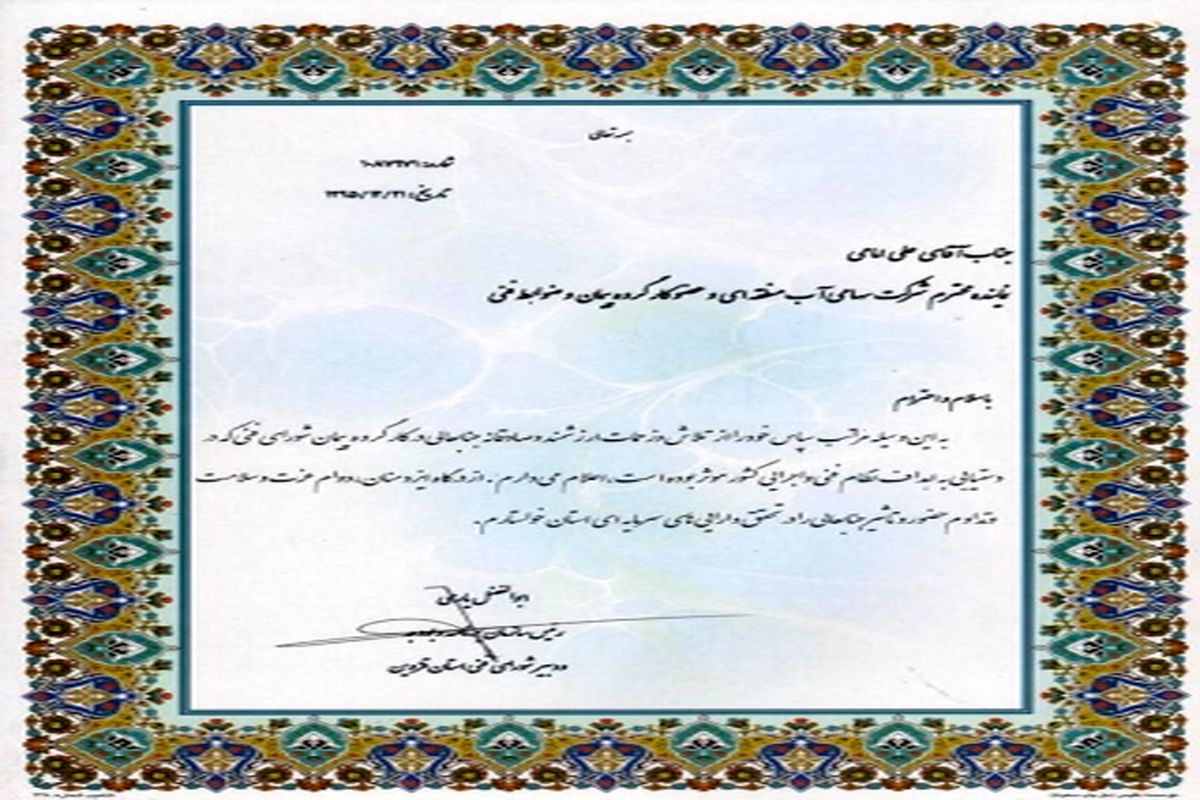 بسمه تعالی
شماره:
تاریخ: ۱۳۹۵/۱۲/۲۱
جناب آقای علی امامی
نماینده محترم شرکت سهامی آب منطقه ای و عضو کار گروه پیمان و ضوابط فنی
با سلام و احترام
به این وسیله مراتب سپاس خود را از تلاش و زحمات ارزشمند و صادقانه جنابعالی در کار گروه پیمان شورای فنی که در
دستیابی به اهداف نظام فنی و اجرایی کشور موثر بوده است، اعلام می دارم. از درگاه ایزد منان، دوام عزت و سلامت
و تداوم حضور و تاثیر جنابعالی را در تحقق دارایی های سرمایه ای استان خواستارم.
ابوالفضل یارعلی
رئیس سازمان برنامه و بودجه
و دبیر شورای فنی استان قزوین